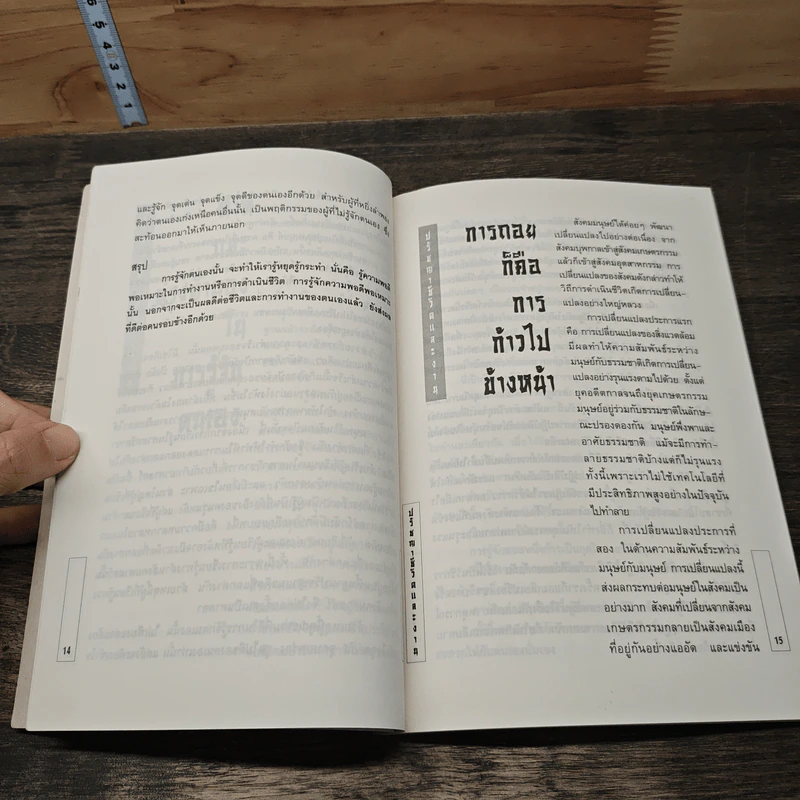 6
5
4
3
2
1
และรู้จัก จุดเด่น จุดแข็ง จุดดีของตนเองอีกด้วย สำหรับผู้ที่หยิ่งลำพอง
คิดว่าตนเองเก่งเหนือคนอื่นนั้น เป็นพฤติกรรมของผู้ที่ไม่รู้จักตนเอง ซึ่ง
สะท้อนออกมาให้เห็นภายนอก
สรุป
การรู้จักตนเองนั้น จะทำให้เรารู้หยุดรู้กระทำ นั่นคือ รู้ความพอดี
พอเหมาะในการทำงานหรือการดำเนินชีวิต การรู้จักความพอดีพอเหมาะ
นั้น นอกจากจะเป็นผลดีต่อชีวิตและการทำงานของตนเองแล้ว ยังส่งผล
ที่ดีต่อคนรอบข้างอีกด้วย
14
ปรัชญาชีวิตและงาน
การถอย
ก็คือ
การ
ก้าวไป
ข้างหน้า
สังคมมนุษย์ได้ค่อยๆ พัฒนา
เปลี่ยนแปลงไปอย่างต่อเนื่อง จาก
สังคมบุพกาลเข้าสู่สังคมเกษตรกรรม
แล้วก็เข้าสู่สังคมอุตสาหกรรม การ
เปลี่ยนแปลงของสังคมดังกล่าวทำให้
วิถีการดำเนินชีวิตเกิดการเปลี่ยน-
แปลงอย่างใหญ่หลวง
การเปลี่ยนแปลงประการแรก
คือ การเปลี่ยนแปลงของสิ่งแวดล้อม
มีผลทำให้ความสัมพันธ์ระหว่าง
มนุษย์กับธรรมชาติเกิดการเปลี่ยน-
แปลงอย่างรุนแรงตามไปด้วย ตั้งแต่
ยุคอดีตกาลจนถึงยุคเกษตรกรรม
มนุษย์อยู่ร่วมกับธรรมชาติในลักษ-
ณะปรองดองกัน มนุษย์พึ่งพาและ
อาศัยธรรมชาติ แม้จะมีการทำ-
ลายธรรมชาติบ้างแต่ก็ไม่รุนแรง
ทั้งนี้เพราะเราไม่ใช้เทคโนโลยีที่
มีประสิทธิภาพสูงอย่างในปัจจุบัน
ไปทำลาย
การเปลี่ยนแปลงประการที่
สอง ในด้านความสัมพันธ์ระหว่าง
มนุษย์กับมนุษย์ การเปลี่ยนแปลงนี้
ส่งผลกระทบต่อมนุษย์ในสังคมเป็น
อย่างมาก สังคมที่เปลี่ยนจากสังคม
เกษตรกรรมกลายเป็นสังคมเมือง
ที่อยู่กันอย่างแออัด และแข่งขัน
ปรัชญาชีวิตและงาน
15